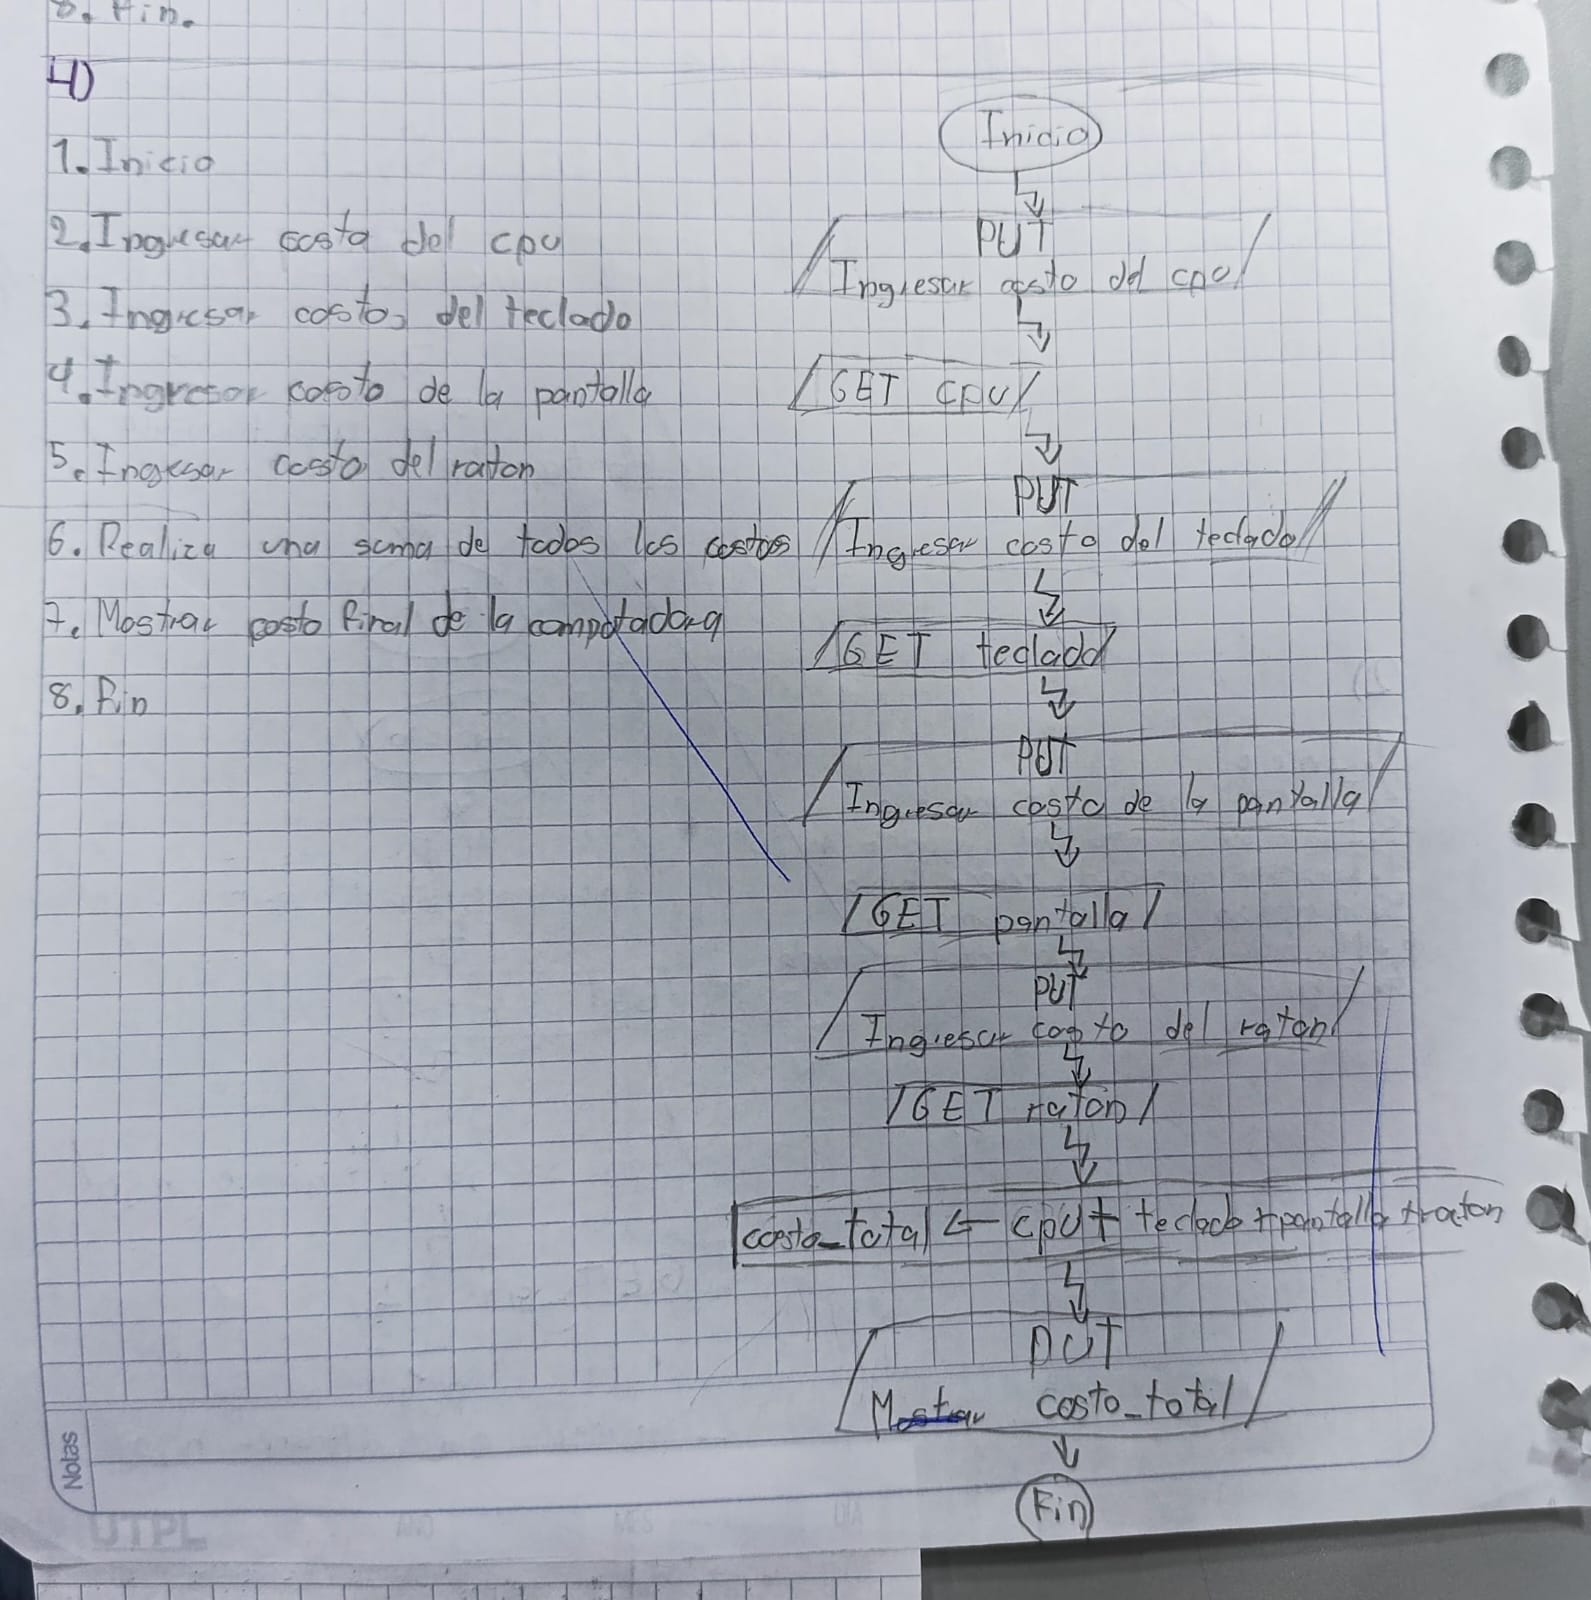 8. Fin.
4)
1. Inicio
2. Ingresar costo del cpu
3. Ingresar costo, del teclado
4. Ingresar costo de la pantalla
5. Ingresar costo del raton
6. Realiza una suma de todos los costos
7. Mostrar costo final de la computadora
8. Fin
Inicio
PUT
Ingresar costo del cpu
GET cpu
PUT
Ingresar costo del teclado
GET teclado
PUT
Ingresar costo de la pantalla
GET pantalla
PUT
Ingresar costo del raton
GET raton
costo_total ← cpu + teclado + pantalla + raton
PUT
Mostrar costo_total
Fin
Notas
UTPL
AÑO
MES
DÍA